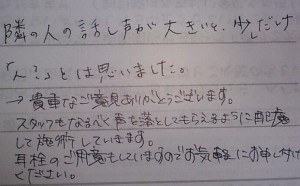 隣の人の話し声が大きいと、少しだけ
「ん?」とは思いました。
→貴重なご意見ありがとうございます。
スタッフもなるべく声を落としてもらえるように配慮
して施術しています。
耳栓のご用意もしていますのでお気軽にお申し付け
ください。